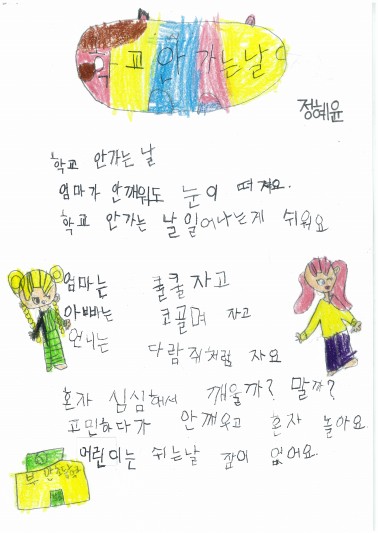 학교 안 가는 날
정혜윤
학교 안가는 날
엄마가 안깨워도 눈이 떠져요.
학교 안가는 날 일어나는게 쉬워요
엄마는 쿨쿨 자고
아빠는 코골며 자고
언니는 다람쥐처럼 자요
혼자 심심해서 깨울까? 말까?
고민하다가 안깨우고 혼자 놀아요.
어린이는 쉬는날 잠이 없어요.